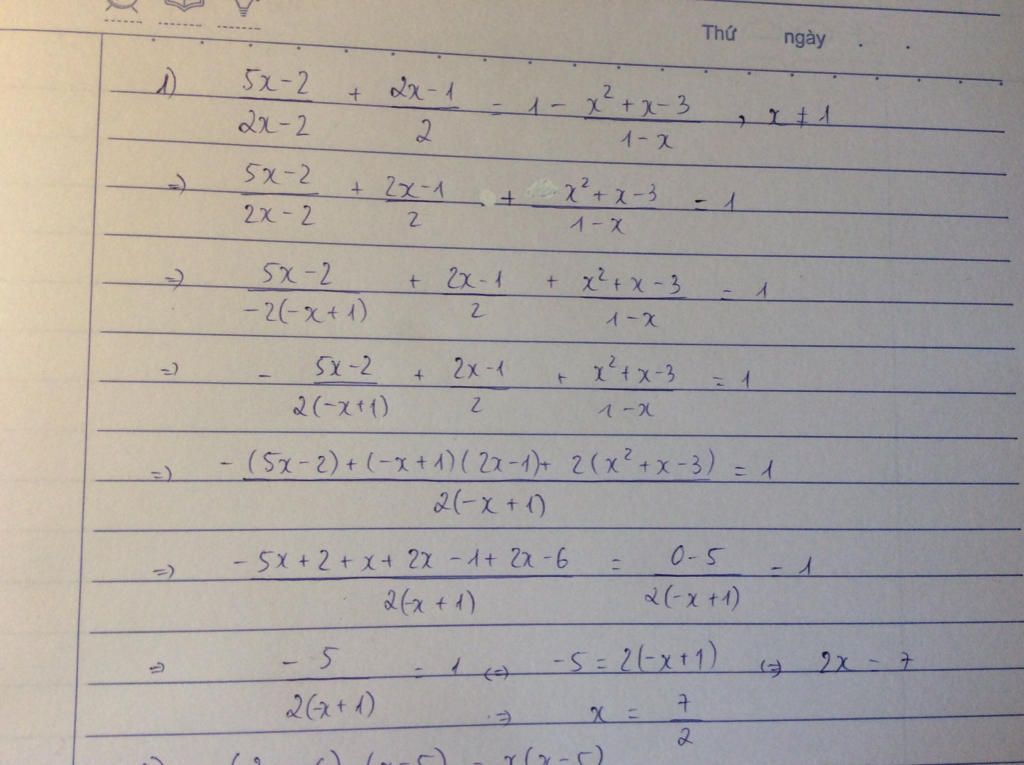 Thứ ngày . .
1) (5x-2)/(2x-2) + (2x-1)/2 = 1 - (x²+x-3)/(1-x) , x ≠ 1
=) (5x-2)/(2x-2) + (2x-1)/2 + (x²+x-3)/(1-x) = 1
=) (5x-2)/(-2(-x+1)) + (2x-1)/2 + (x²+x-3)/(1-x) = 1
=) - (5x-2)/(2(-x+1)) + (2x-1)/2 + (x²+x-3)/(1-x) = 1
=) (-(5x-2)+(-x+1)(2x-1)+2(x²+x-3))/(2(-x+1)) = 1
=) (-5x+2+x+2x-1+2x-6)/(2(-x+1)) = (0-5)/(2(-x+1)) = 1
=) (-5)/(2(-x+1)) = 1 (=) -5 = 2(-x+1) (=) 2x = 7
=) x = 7/2
(x-5) = x(x-5)